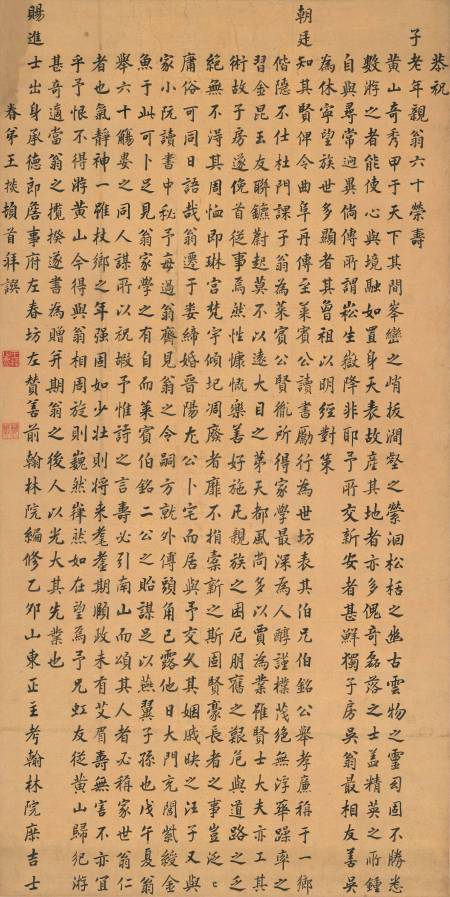 恭祝
子老年親翁六十榮壽
黃山奇秀甲于天下其間峯巒之峭拔澗壑之縈洄松栝之幽古雲物之靈固不勝悉
數游之者能使心與境融如置身天表故產其地者亦多傀奇磊落之士蓋精英之所鍾
自與尋常迥異倘傳所謂崧生嶽降非耶予所交新安者甚鮮獨子房吳翁最相友善吳
為休寧望族世多顯者其曾祖以明經對策
朝廷知其賢俾令曲阜再傳至萊賓公讀書勵行為世坊表其伯兄伯銘公舉孝廉稱于一鄉
偕隱不仕杜門課子翁為萊賓公賢胤所得家學最深為人醇謹樸茂絕無浮華躁率之
習金昆玉友聯鑣蔚起莫不以遠大目之第天都風尚多以賈為業雖賢士大夫亦工其
術故子房遂俛首從事焉然性慷慨樂善好施凡親族之困厄朋舊之艱危與道路之乏
絕無不得其周恤即琳宮梵宇傾圮凋廢者靡不捐槖新之斯固賢豪長者之事豈泛泛
庸俗可同日語哉翁遷于婁締婚晉陽尨公卜宅而居與予交久其姻戚映之汪子又與
家小阮讀書中秘予每過翁齋見翁之令嗣方就外傅頭角已露他日大門充閭紫綬金
魚于此可卜足見翁家學之有自而萊賓伯銘二公之貽謀足以燕翼子孫也戊午夏翁
舉六十觴婁之同人謀所以祝嘏予惟詩之言壽必引南山而頌其人者必稱家世翁仁
者也氣靜神一雖杖鄉之年強固如少壯則將來耄耋期頤政未有艾眉壽無害不亦宜
乎予恨不得游黃山今得與翁相周旋則巍然嶐然如在望焉予兄虹友從黃山歸紀游
甚奇適當翁之攬揆遂書為贈并期翁之後人以光大其先業也
賜進士出身承德郎詹事府左春坊左贊善前翰林院編修乙卯山東正主考翰林院庶吉士
春弟王掞頓首拜譔